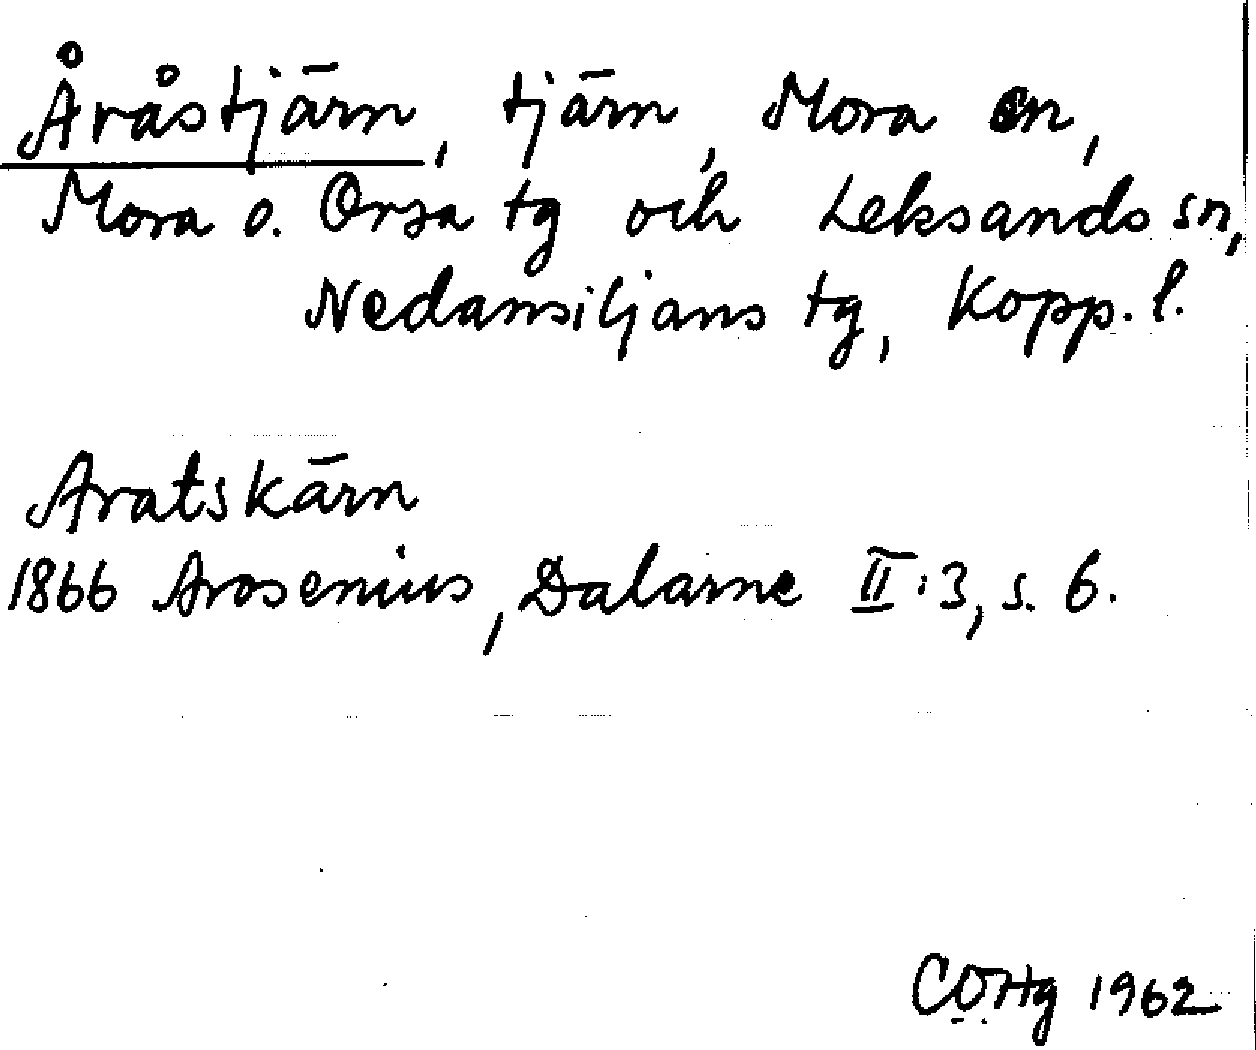 Åråstjärn, tjärn, Mora sn,
Mora o. Orsa tg och Leksands sn,
Nedansiljans tg, Kopp. l.
Aratskärn
1866 Arosenius, Dalarne II:3, s. 6.
1962